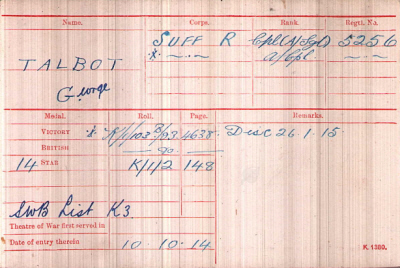 Name. Corps. Rank. Regtl. No.
SUFF R Cpl(A/Sgt) 5256
TALBOT * -..- a/Cpl. -..-
George
Medal. Roll. Page. Remarks.
VICTORY * K/1/103B/93 4638. Disc 26.1.15.
BRITISH — do —
14 STAR K/1/2 148
SWB List K3
Theatre of War first served in
Date of entry therein 10.10.14
K. 1380.